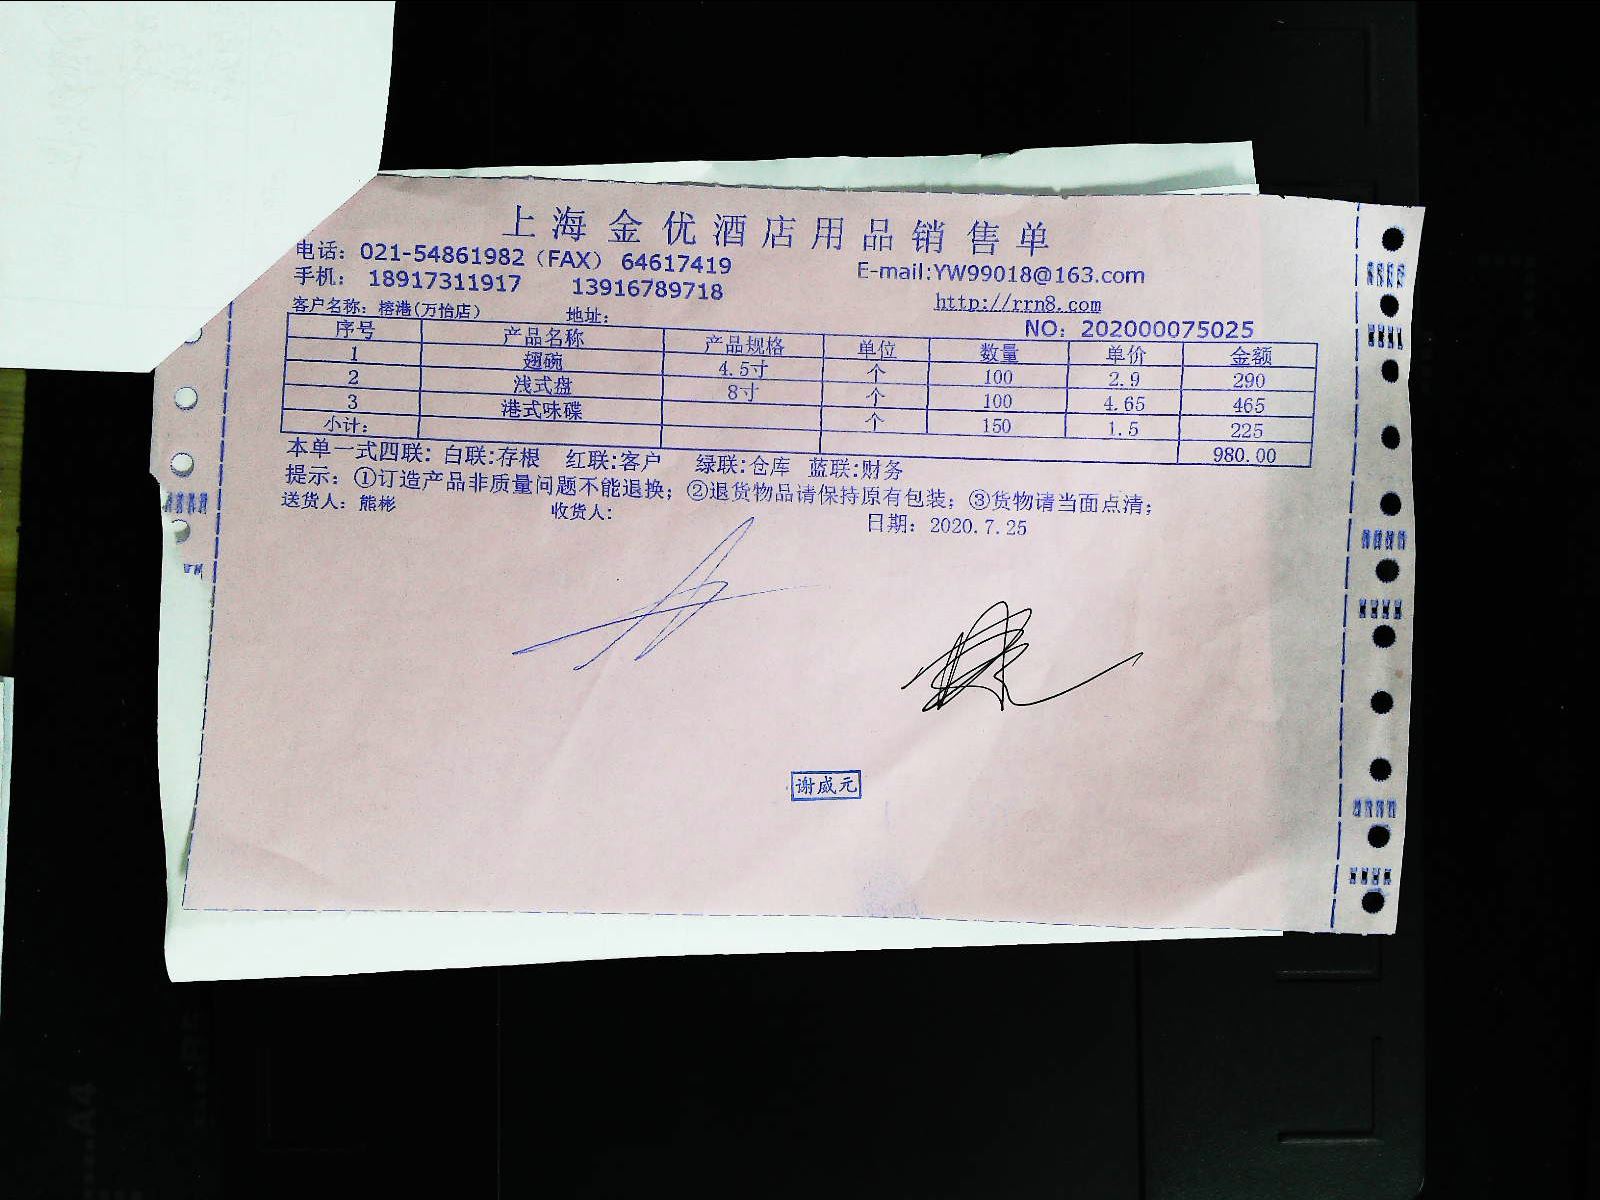 上海金优酒店用品销售单
电话：021-54861982（FAX） 64617419
E-mail:YW99018@163.com
手机： 18917311917 13916789718
http://rrn8.com
客户名称：榕港(万怡店） 地址：
NO：202000075025
序号 产品名称 产品规格 单位 数量 单价 金额
1 翅碗 4.5寸 个 100 2.9 290
2 浅式盘 8寸 个 100 4.65 465
3 港式味碟 个 150 1.5 225
小计： 980.00
本单一式四联：白联:存根 红联:客户 绿联:仓库 蓝联:财务
提示：①订造产品非质量问题不能退换；②退货物品请保持原有包装；③货物请当面点清；
送货人：熊彬 收货人： 日期：2020.7.25
谢威元